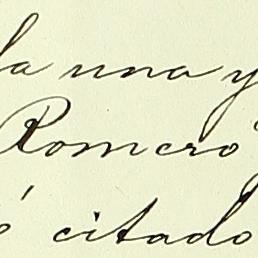 la una y
Romero
ó citado